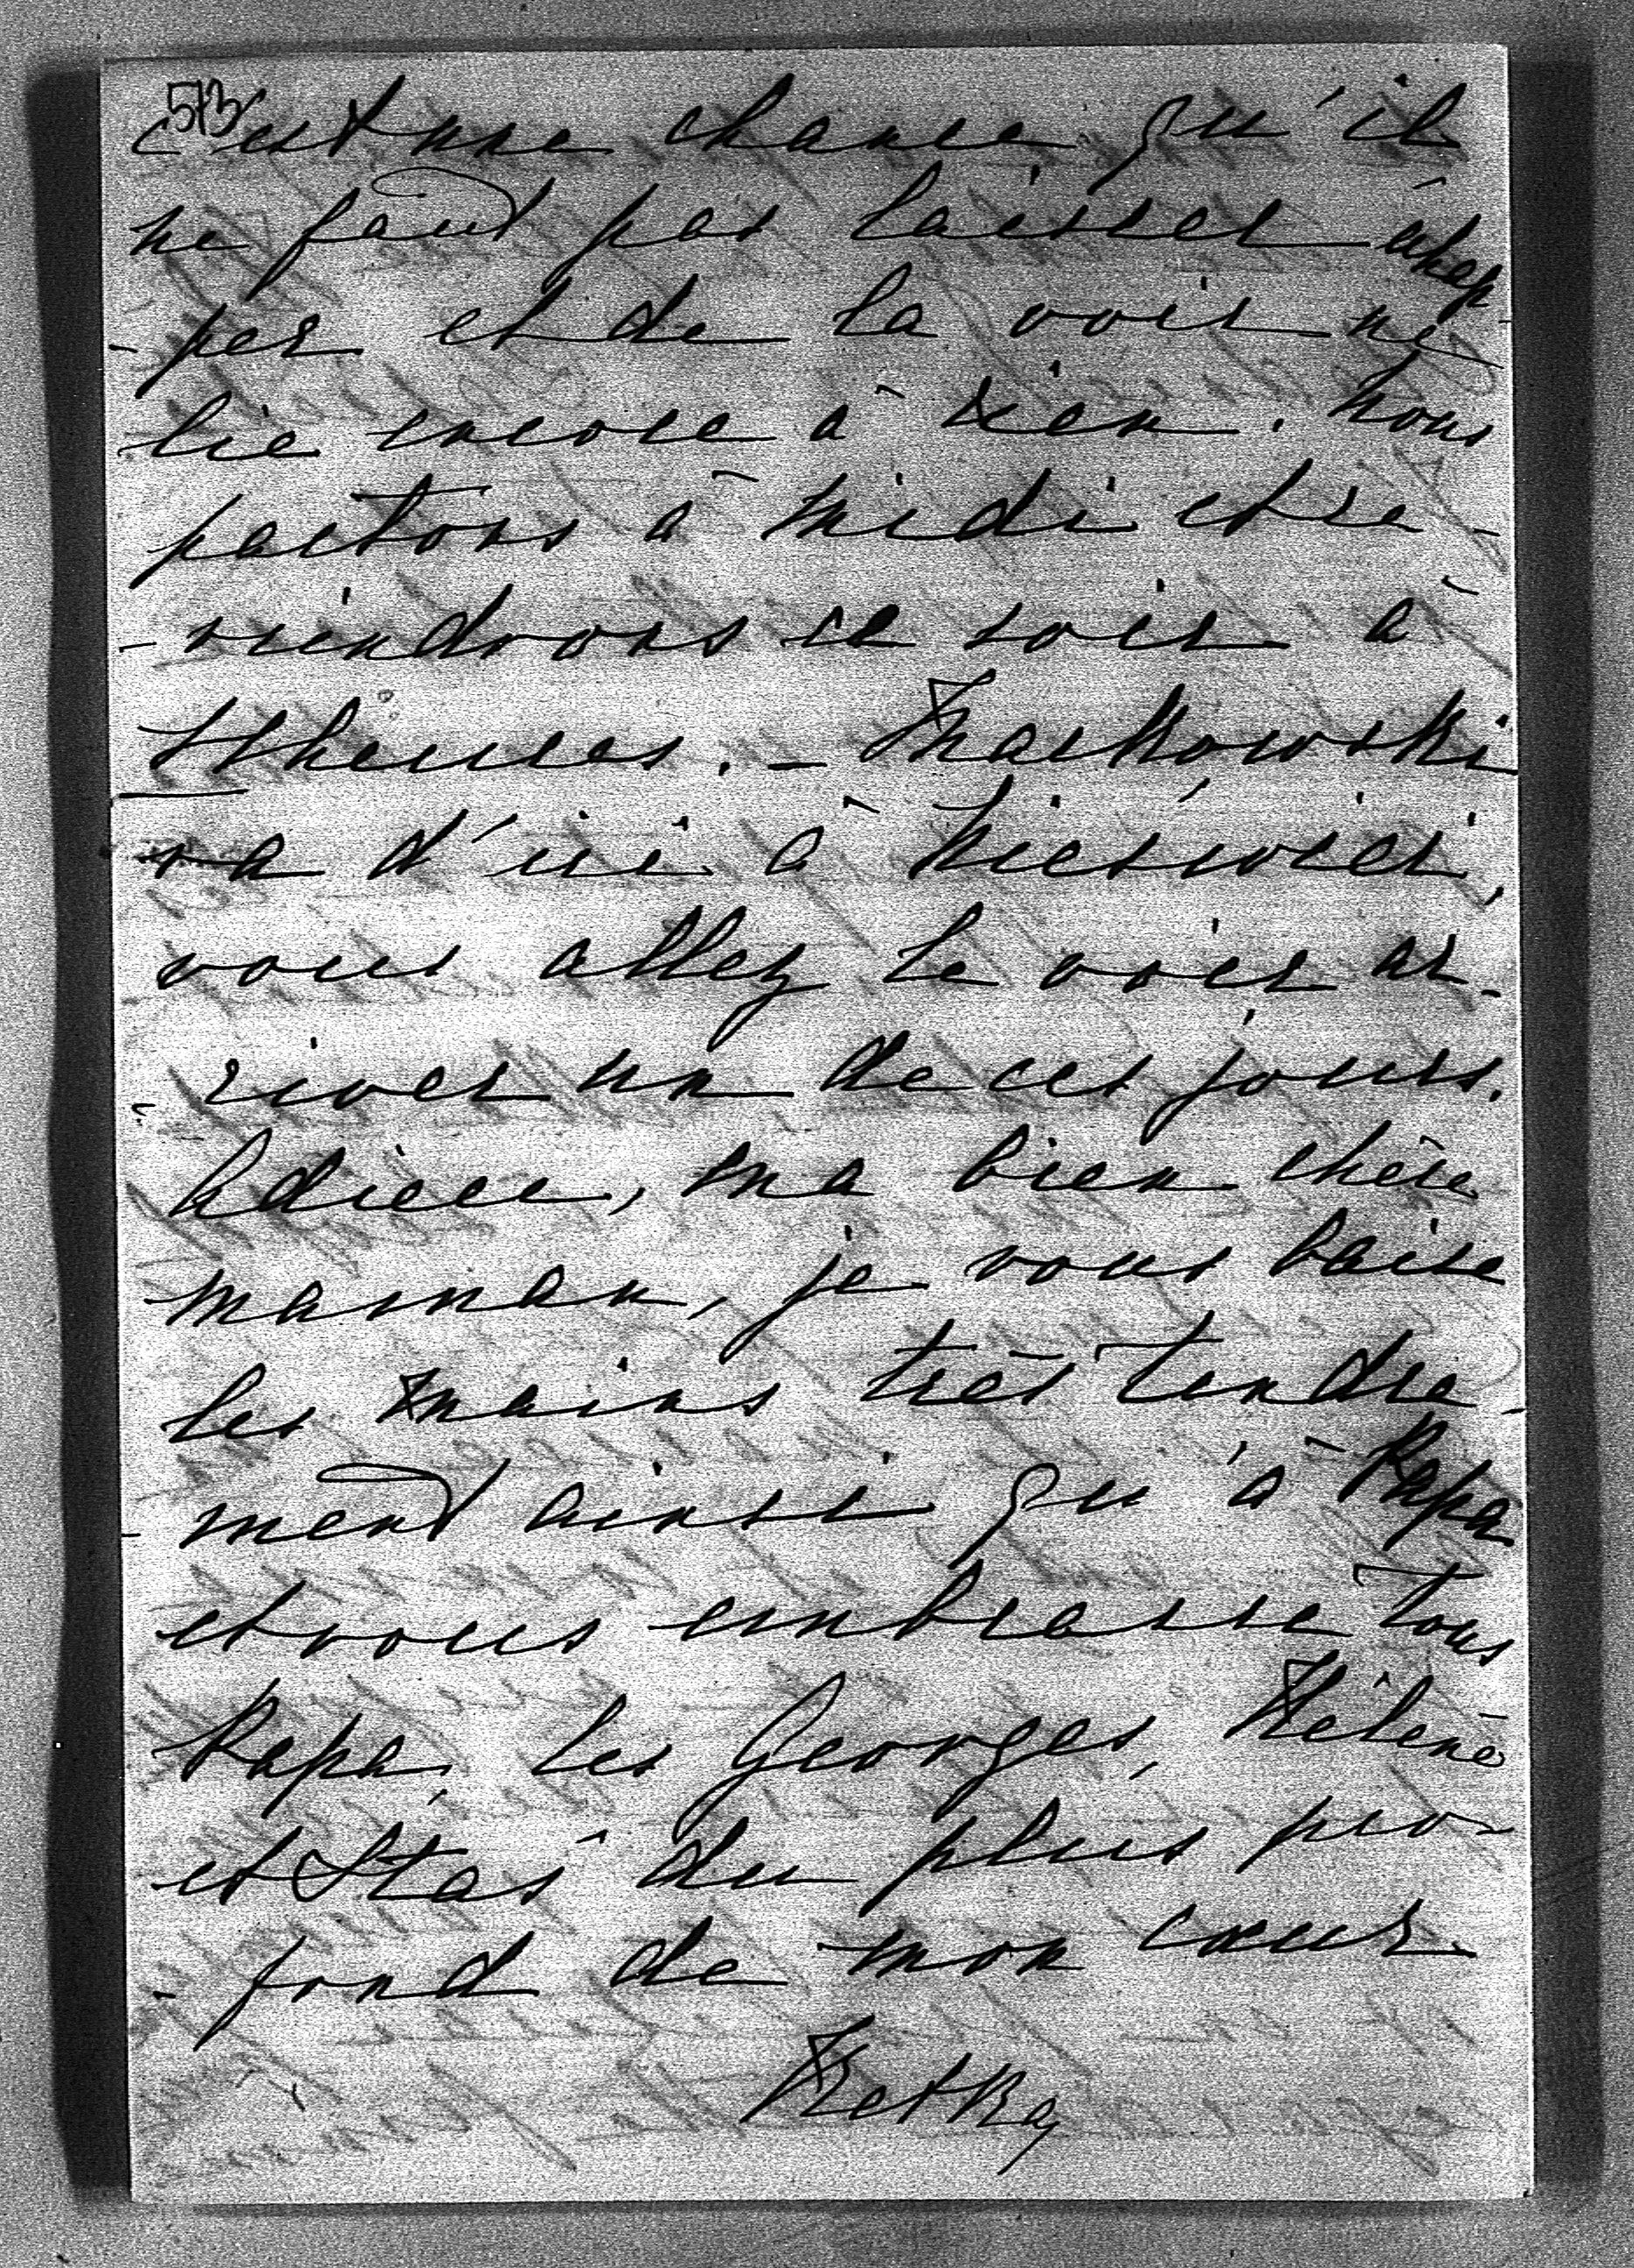 513
c'est une chance qu'il
ne faut pas laisser échap
-per et de la voir ne
lie encore à rien. Nous
partons à midi et re-
-viendrons ce soir à
heures. –
va d'ici à Nieświez,
vous allez le voir ar-
-river un de ces jours.
Adieu, ma bien chère
maman, je vous baise
les mains très tendre-
-ment ainsi qu'à Papa
et vous embrasse tous
Papa, les Georges, Hélène
et Staś du plus pro-
-fond de mon cœur